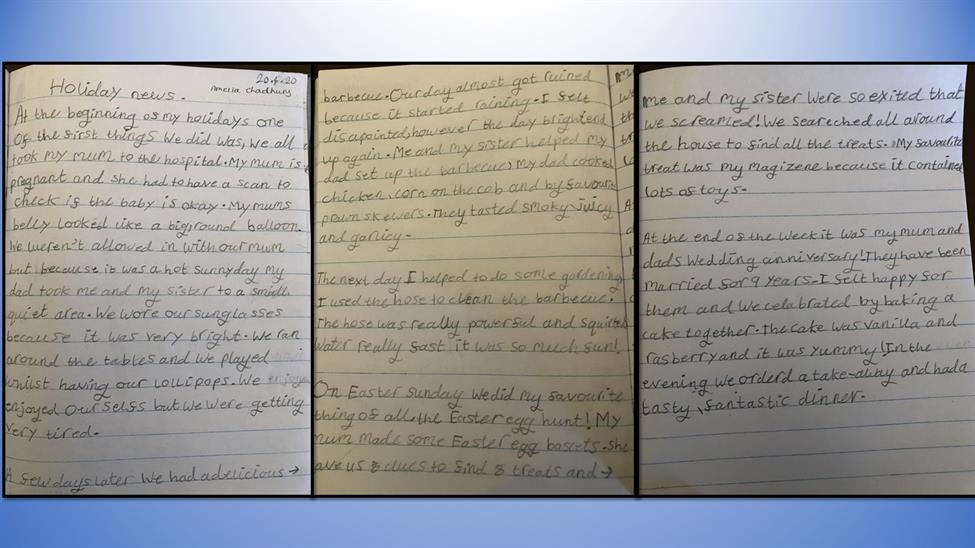 Holiday news.
20.4.20
Amelia Chadhury
At the beginning of my holidays one
of the first things we did was, we all
took my mum to the hospital. My mum is
pregnant and she had to have a scan to
check if the baby is okay. My mums
belly looked like a big round balloon.
We weren't allowed in with our mum
but because it was a hot sunnyday my
dad took me and my sister to a small
quiet area. We wore our sunglasses
because it was very bright. We ran
around the tables and we played
whilst having our lollipops. We
enjoyed ourselfs but we were getting
very tired.
A few days later we had a delicious →
barbecue. Our day almost got ruined
because it started raining. I felt
disapointed, however the day brightend
up again. Me and my sister helped my
dad set up the barbecue, my dad cooked
chicken, corn on the cob and by favourite
prawn skewers. They tasted smoky juicy
and garlicy.
The next day I helped to do some gardening
I used the hose to clean the barbecue.
The hose was really powerful and squirted
water really fast it was so much fun!
On Easter sunday we did my favourite
thing of all, the Easter egg hunt! My
mum made some Easter egg bascets. She
gave us 8 clues to find 8 treats and →
me and my sister were so exited that
we screamed! We searched all around
the house to find all the treats. My favourite
treat was my magizene because it contained
lots of toys.
At the end of the week it was my mum and
dads wedding anniversary! They have been
married for 9 years. I felt happy for
them and we celebrated by baking a
cake together. The cake was vanilla and
rasberry and it was yummy! In the
evening we orderd a take-away and had a
tasty, fantastic dinner.